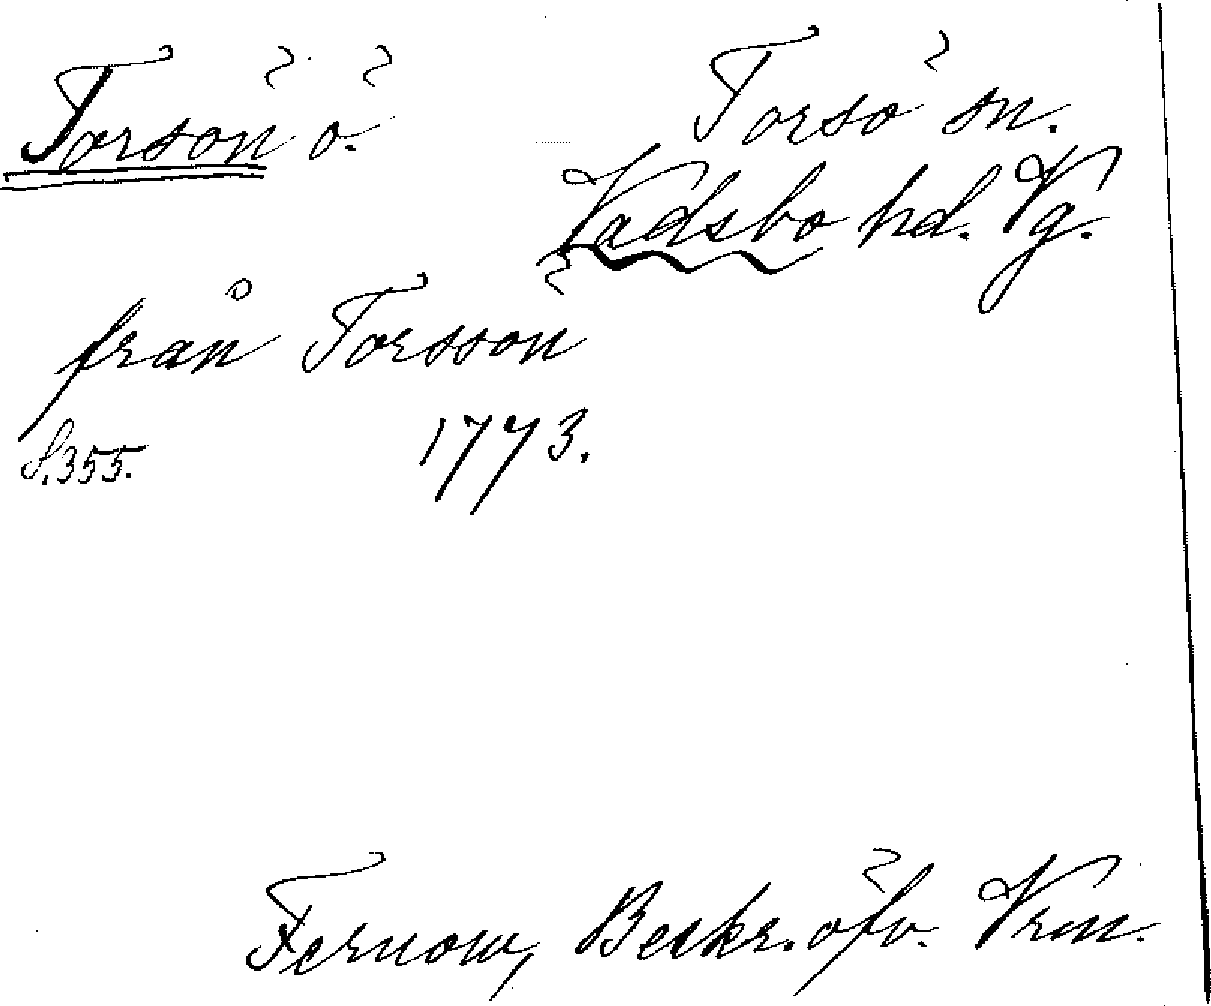 Torsön ö. Torsö sn.
Vadsbo hd. Vg.
från Torssön
S. 355. 1773.
Fernow, Beskr. öfv. Vrm.